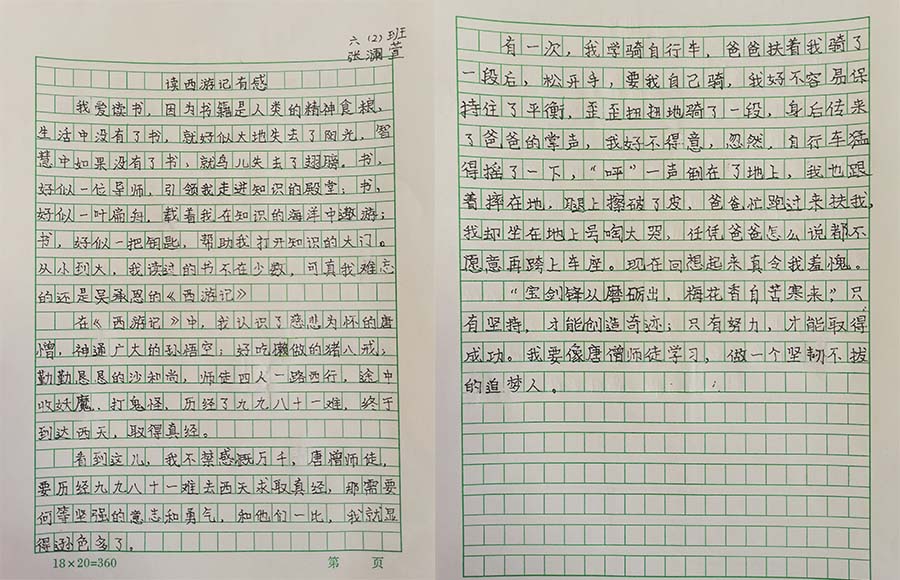 六（2）班
张澜萱
读西游记有感
我爱读书，因为书籍是人类的精神食粮，
生活中没有了书，就好似大地失去了阳光，智
慧中如果没有了书，就鸟儿失去了翅膀。书，
好似一位导师，引领我走进知识的殿堂；书，
好似一叶扁舟，载着我在知识的海洋中遨游；
书，好似一把钥匙，帮助我打开知识的大门。
从小到大，我读过的书不在少数，可真我难忘
的还是吴承恩的《西游记》
在《西游记》中，我认识了慈悲为怀的唐
僧，神通广大的孙悟空；好吃懒做的猪八戒；
勤勤恳恳的沙和尚，师徒四人一路西行，途中
收妖魔、打鬼怪，历经了九九八十一难，终于
到达西天，取得真经。
看到这儿，我不禁感慨万千，唐僧师徒，
要历经九九八十一难去西天求取真经，那需要
何等坚强的意志和勇气，和他们一比，我就显
得逊色多了。
18×20=360 第 页
有一次，我学骑自行车，爸爸扶着我骑了
一段后，松开手，要我自己骑，我好不容易保
持住了平衡，歪歪扭扭地骑了一段，身后传来
了爸爸的掌声，我好不得意，忽然，自行车猛
得摇了一下，“呯”一声倒在了地上，我也跟
着摔在地，腿上擦破了皮，爸爸忙跑过来扶我，
我却坐在地上号啕大哭，任凭爸爸怎么说都不
愿意再跨上车座。现在回想起来真令我羞愧。
“宝剑锋从磨砺出，梅花香自苦寒来”只
有坚持，才能创造奇迹；只有努力，才能取得
成功。我要像唐僧师徒学习，做一个坚韧不拔
的追梦人。